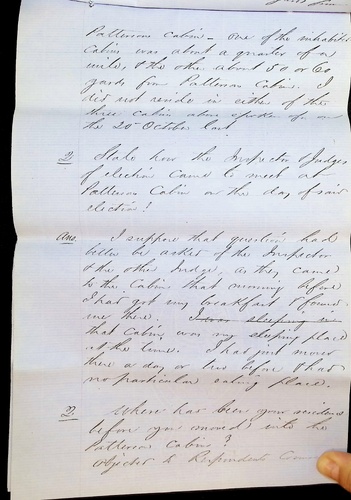 Patterson Cabin - one of the inhabited
Cabins was about a quarter of a
mile, & the other about 50 or 60
yards from Patterson Cabin. I
did not reside in either of the
three Cabins above spoken of on
the 20th October last.
Q. State how the Inspector & Judges
of election came to meet at
Patterson Cabin on the day of said
election?
Ans. I suppose that question had
better be asked of the Inspector
& the other Judge, as they came
to the Cabin that morning before
I had got my breakfast & found
me there. I was sleeping in
that Cabin was my sleeping place
at the time. I had just moved
there a day or two before & had
no particular eating place.
Q. Where has been your residence
before you moved into the
Patterson Cabin?
Objected to Respondents